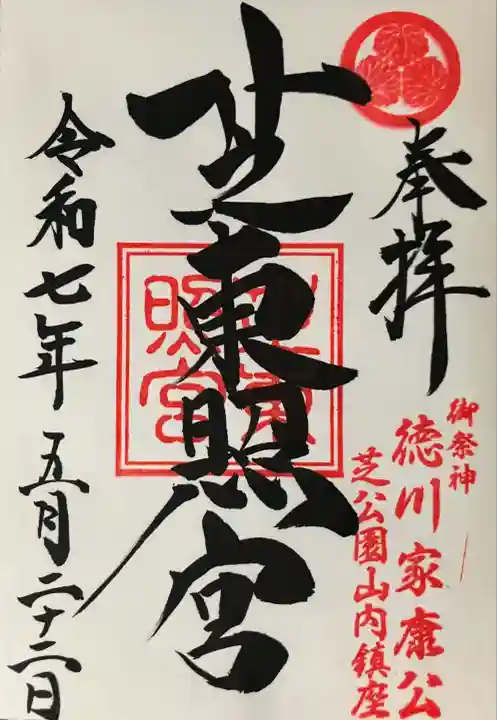 奉拝
御祭神
徳川家康公
芝公園山内鎮座
芝東照宮
芝東照宮
令和七年五月二十二日